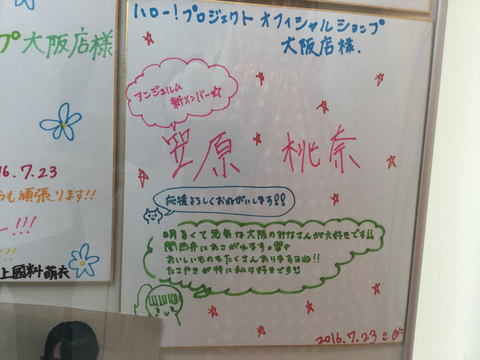 プ大阪店様
16.7.23
も頑張ります!!
ー!!!
上國料萌衣
ハロー!プロジェクト オフィシャルショップ
大阪店様.
アンジュルム
新メンバー☆
笠原 桃奈
応援よろしくおねがいします!!
明るくて元気な大阪のみなさんが大好きです!!
関西弁にあこがれます
おいしいものもたくさんありますよね!!
たこやきが特に私は好きです
2016.7.23